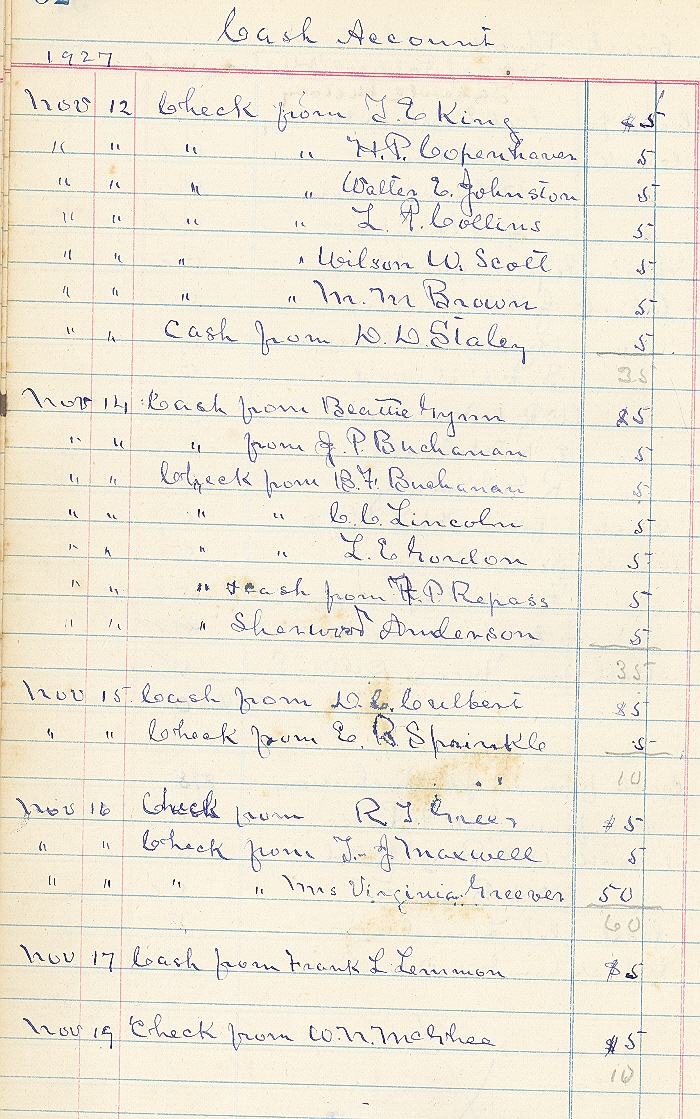 Cash Account
1927
Nov 12 Check from T. E King $5
" " " " H. P. Copenhaver 5
" " " " Walter E. Johnston 5
" " " " L. P. Collins 5
" " " " Wilson W. Scott 5
" " " " M. M Brown 5
" " Cash from D. D. Staley 5
35
Nov 14 Cash from Beattie Gynn $5
" " " from J. P. Buchanan 5
" " Check from B. F. Buchanan 5
" " " " C. C. Lincoln 5
" " " " L. E Gordon 5
" " " cash from H. P. Repass 5
" " " Sherwood Anderson 5
35
Nov 15 Cash from D. C. Culbert $5
" " Check from E. R Sprinkle 5
10
Nov 16 Check from R T Greer $5
" " Check from T. J Maxwell 5
" " " " Mrs Virginia Greever 50
60
Nov 17 Cash from Frank L. Lemmon $5
Nov 19 Check from W. N. McGhee $5
10